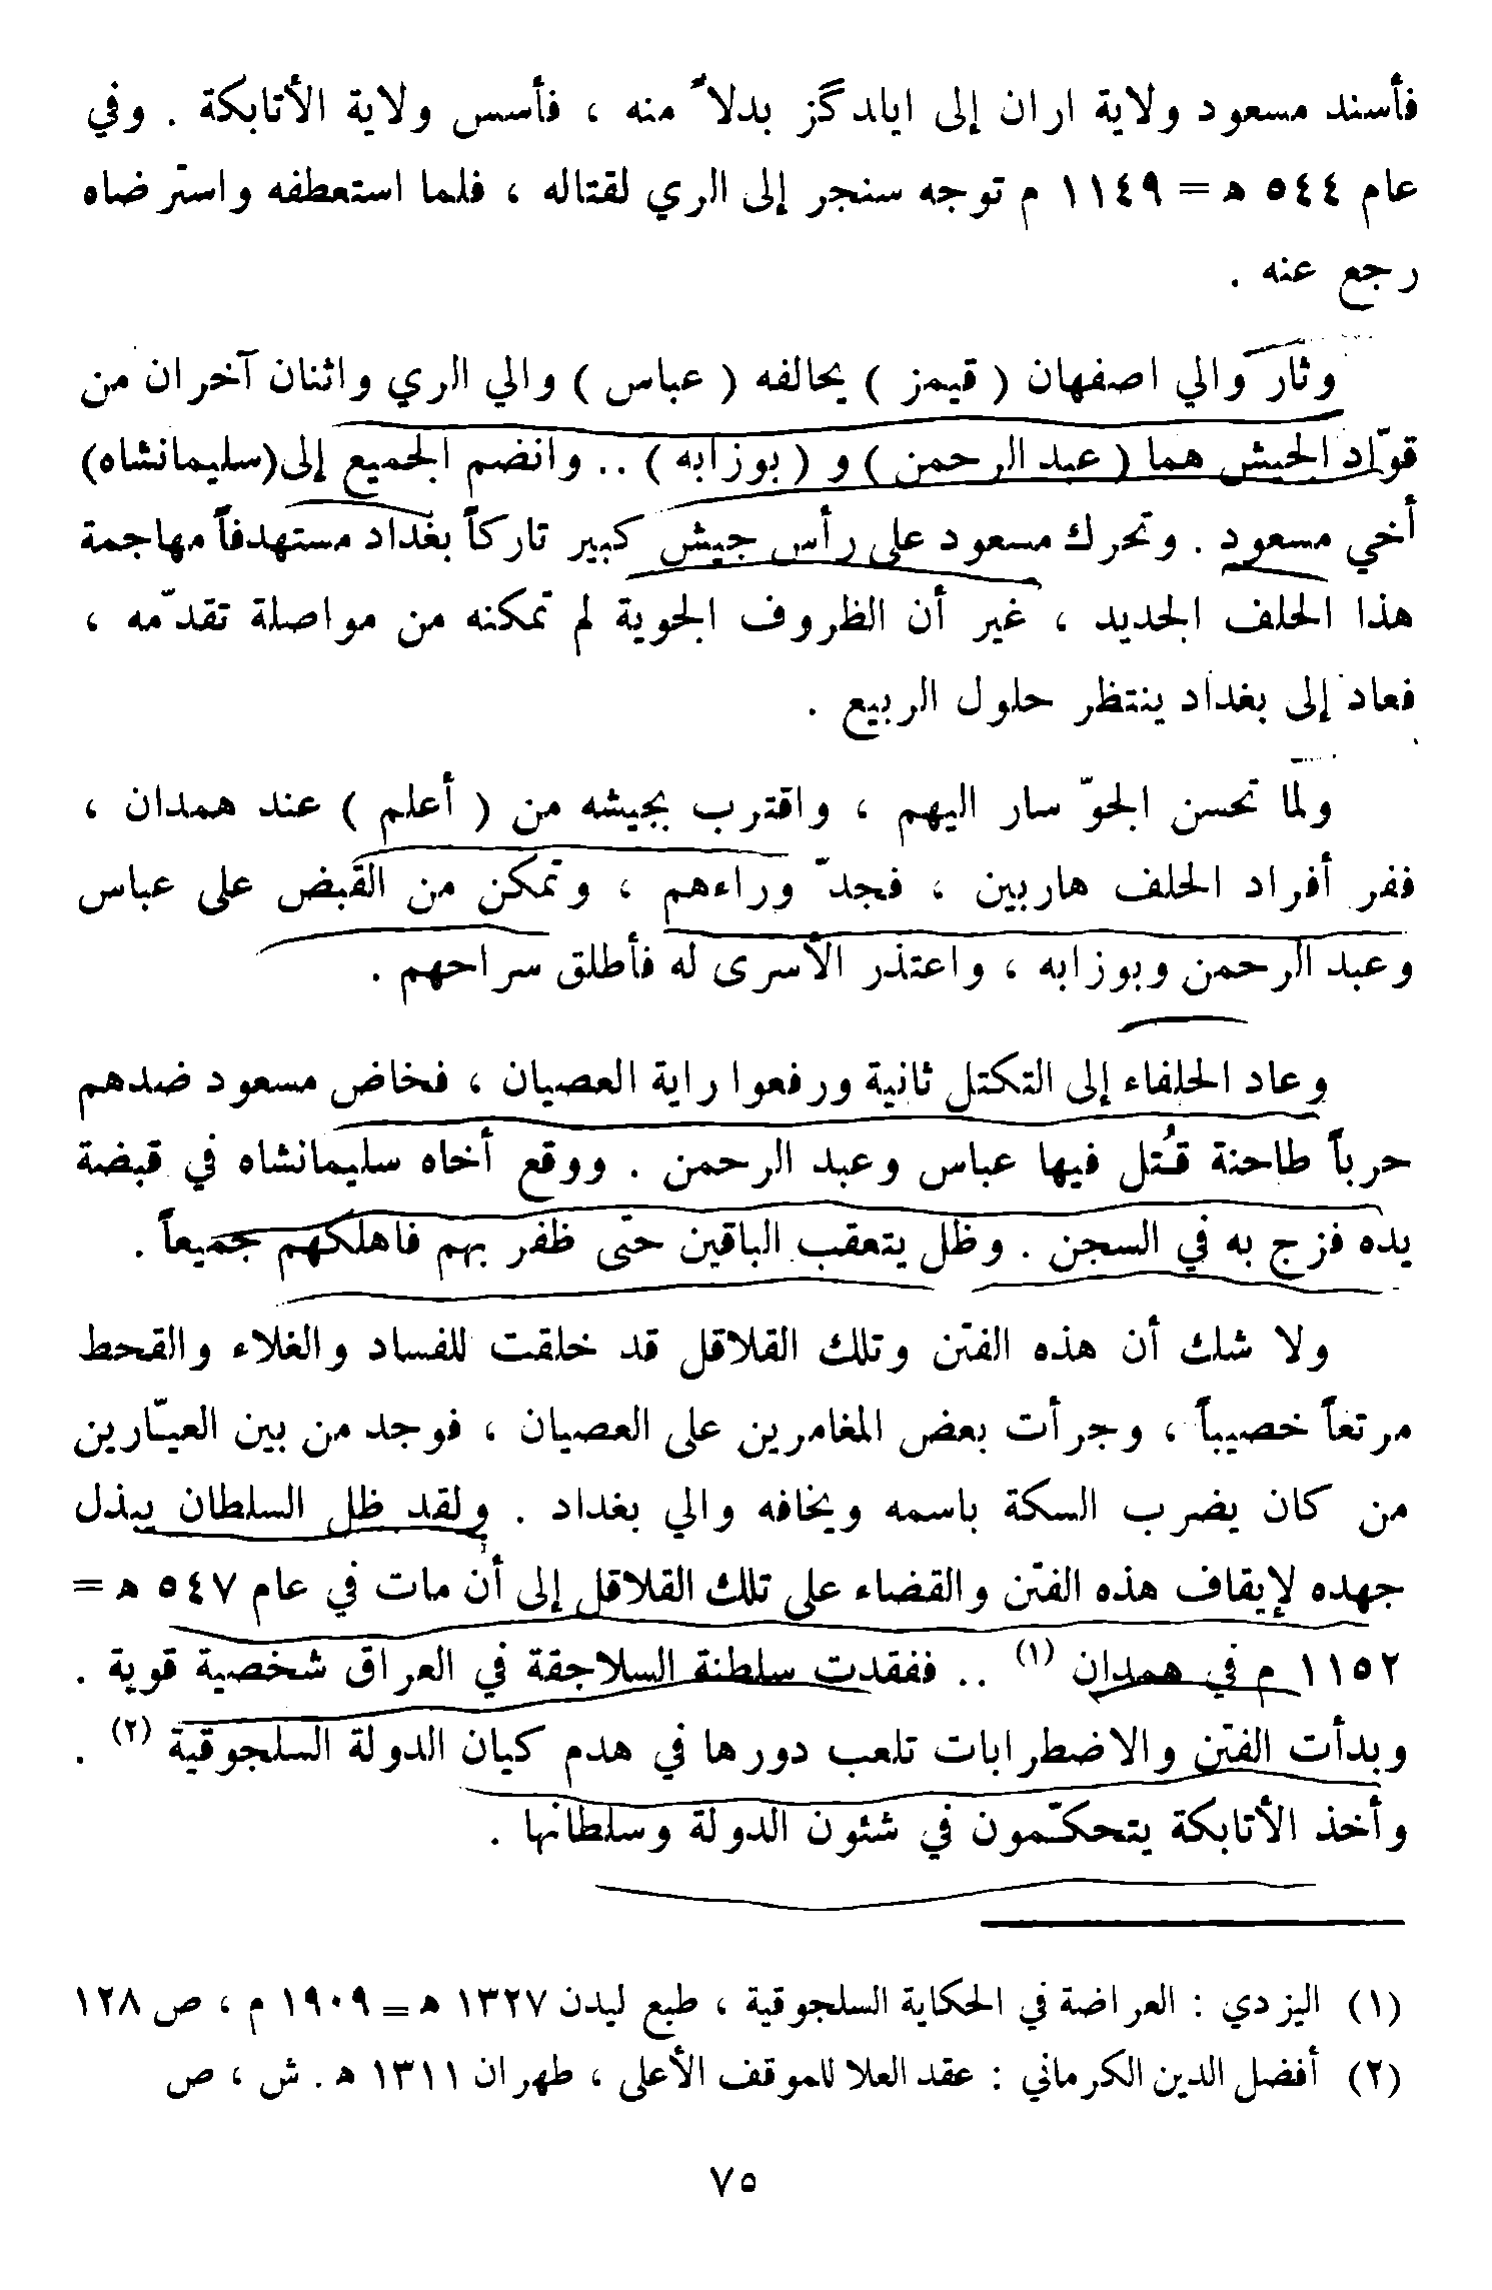 فأسند مسعود ولاية اران إلى ايلدگز بدلاً منه ، فأسس ولاية الأتابكة . وفي
عام ٥٤٤ ه = ١١٤٩ م توجه سنجر إلى الري لقتاله ، فلما استعطفه واسترضاه
رجع عنه .
وثار والي اصفهان ( قيمز ) يحالفه ( عباس ) والي الري واثنان آخران من
قوّاد الجيش هما ( عبد الرحمن ) و ( بوزابه ) .. وانضم الجميع إلى (سليمانشاه)
أخي مسعود . وتحرك مسعود على رأس جيش كبير تاركاً بغداد مستهدفاً مهاجمة
هذا الحلف الجديد ، غير أن الظروف الجوية لم تمكنه من مواصلة تقدّمه ،
فعاد إلى بغداد ينتظر حلول الربيع .
ولما تحسن الجوّ سار اليهم ، واقترب بجيشه من ( أعلم ) عند همدان ،
ففر أفراد الحلف هاربين ، فجدّ وراءهم ، وتمكن من القبض على عباس
وعبد الرحمن وبوزابه ، واعتذر الأسرى له فأطلق سراحهم .
وعاد الحلفاء إلى التكتل ثانية ورفعوا راية العصيان ، فخاض مسعود ضدهم
حرباً طاحنة قُتل فيها عباس وعبد الرحمن . ووقع أخاه سليمانشاه في قبضة
يده فزج به في السجن . وظل يتعقب الباقين حتى ظفر بهم فاهلكهم جميعاً .
ولا شك أن هذه الفتن وتلك القلاقل قد خلقت للفساد والغلاء والقحط
مرتعاً خصيباً ، وجرأت بعض المغامرين على العصيان ، فوجد من بين العيّارين
من كان يضرب السكة باسمه ويخافه والي بغداد . ولقد ظل السلطان يبذل
جهده لإيقاف هذه الفتن والقضاء على تلك القلاقل إلى أن مات في عام ٥٤٧ ه =
١١٥٢ م في همدان (١) .. ففقدت سلطنة السلاجقة في العراق شخصية قوية .
وبدأت الفتن والاضطرابات تلعب دورها في هدم كيان الدولة السلجوقية (٢) .
وأخذ الأتابكة يتحكّمون في شئون الدولة وسلطانها .
(١) اليزدي : العراضة في الحكاية السلجوقية ، طبع ليدن ١٣٢٧ ه = ١٩٠٩ م ، ص ١٢٨
(٢) أفضل الدين الكرماني : عقد العلا للموقف الأعلى ، طهران ١٣١١ ه . ش ، ص
٧٥